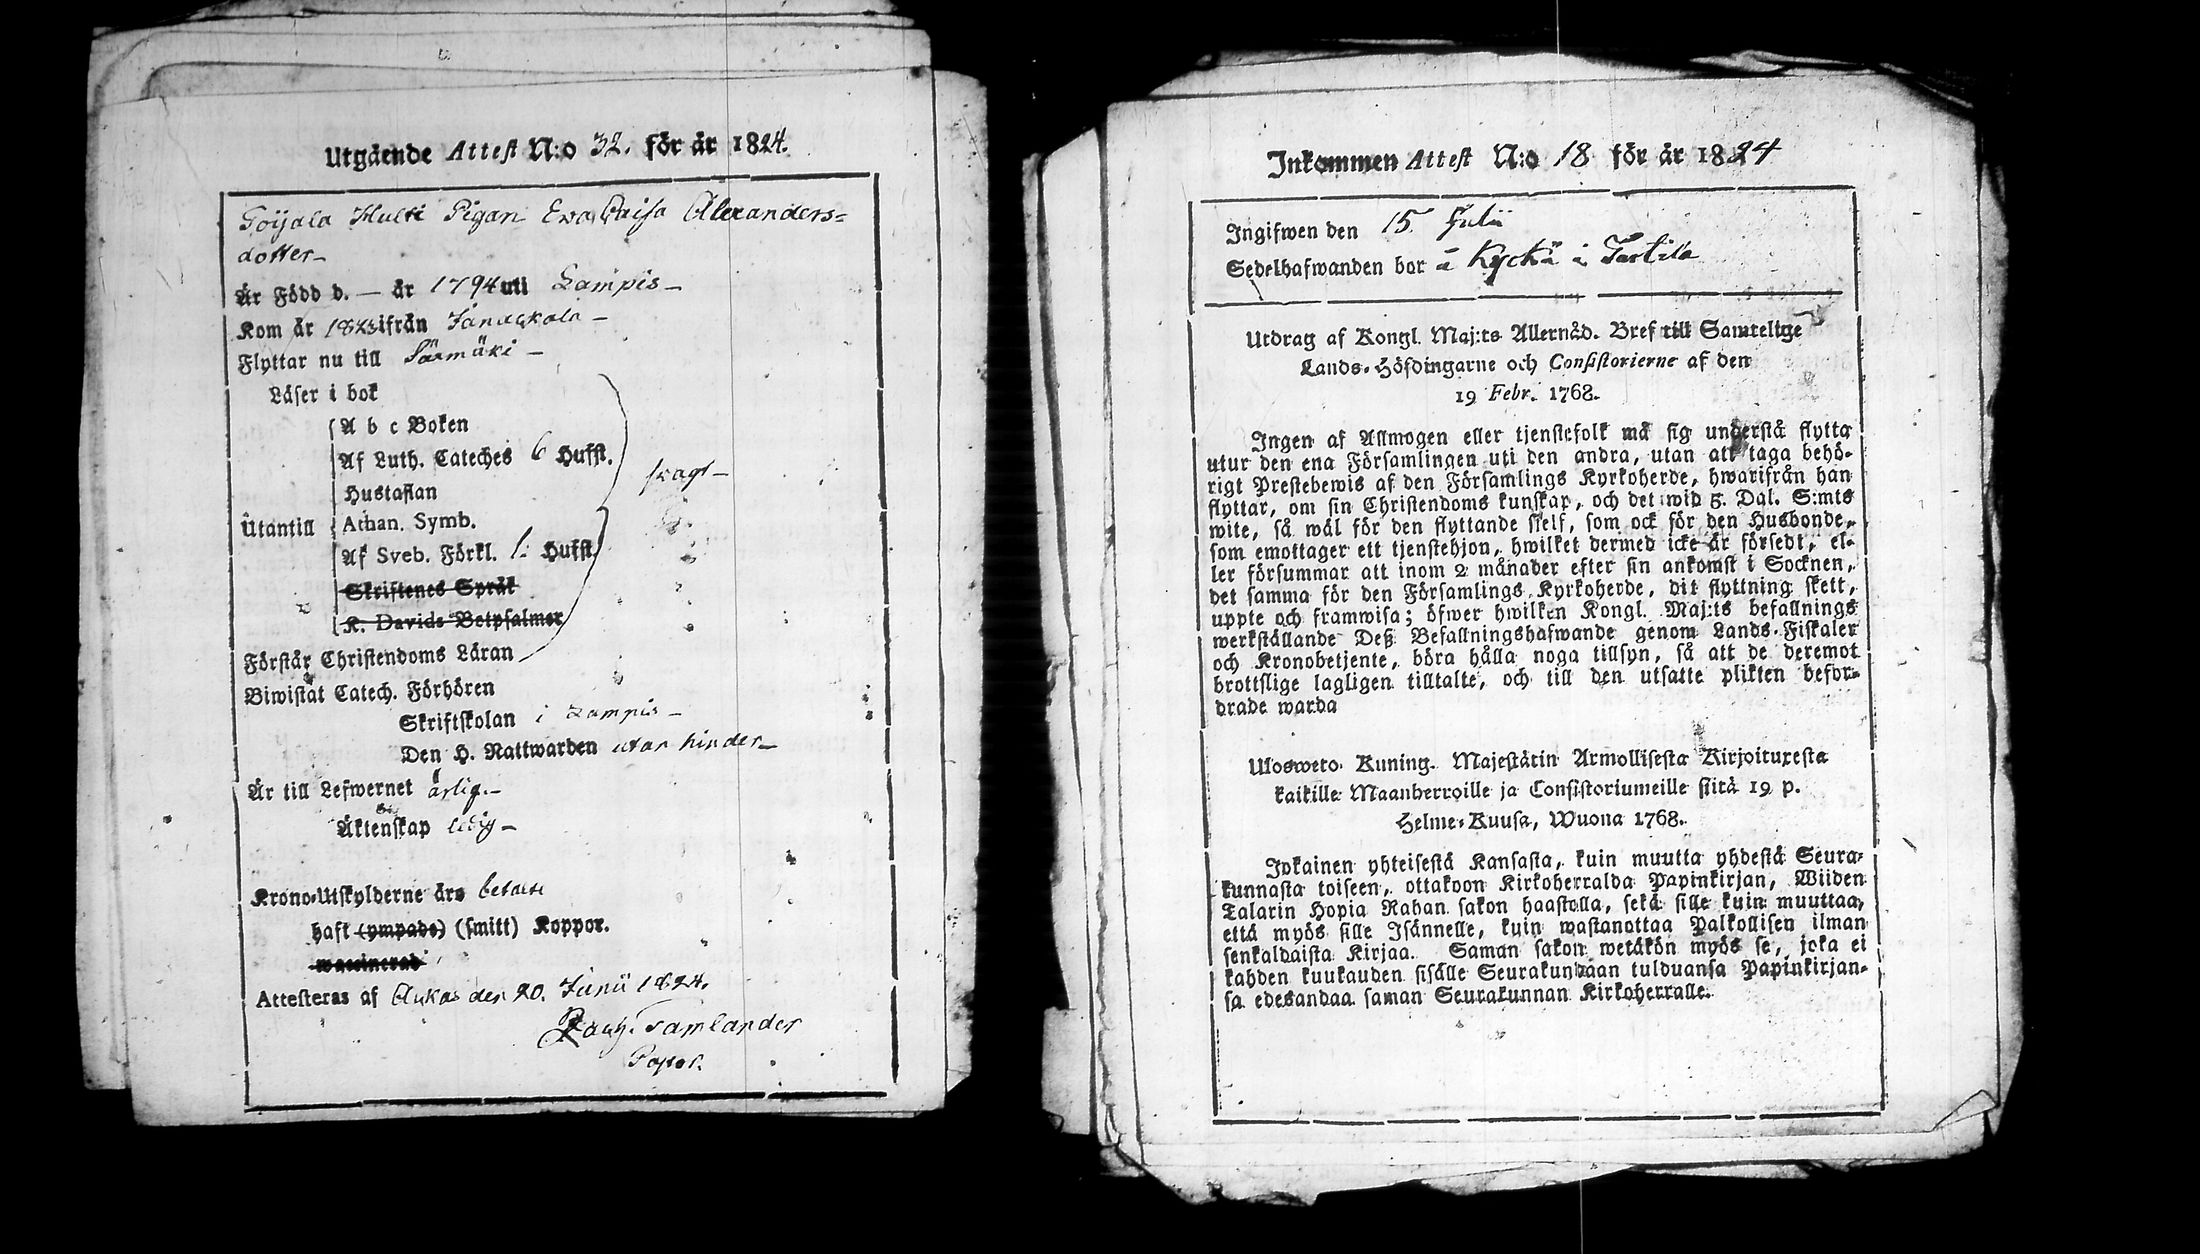 Utgående Attest N:o 32. för år 1824.
Toijala Hulti Pigan Eva Caisa Alexanders=
dotter_
Är Född d. — år 1794 uti Lampis_
Kom år 1823 ifrån Janackala –
Flyttar nu till Säxmäki –
Läser i bok
A b c Boken
Af Luth. Cateches 6 Hufst.
Hustaflan
svagt –
Utantill
Athan. Symb.
Af Sveb. Förkl. 1. Hufst.
Skriftenes Språk
K. Davids Botpsalmer
Förstår Christendoms Läran
Biwistat Catech. Förhören
Skriftskolan i Lampis –
Den H. Nattwarden utan hinder_
Är till Lefwernet ärlig_
Äktenskap ledig –
Krono-Utskylderne äro
haft (ympade) (smitt) Koppor.
waccinerad
Attesteras af Ackas den 20. Junii 1824.
Zach. Tamlander
Pastor.
Inkommen Attest N:o 18 för år 1824
Ingifwen den 15. Julii
Sedelhafwanden bor å Kyckä i
Utdrag af Kongl. Maj:ts Allernåd. Bref till Samtelige
Lands-Höfdingarne och Consistorierne af den
19 Febr. 1768.
Ingen af Allmogen eller tjenstefolk må sig understå flytta
utur den ena Församlingen uti den andra, utan att taga behö-
rigt Prestebewis af den Församlings Kyrkoherde, hwarifrån han
flyttar, om sin Christendoms kunskap, och det wid 5. Dal. S:mts
wite, så wäl för den flyttande sielf, som ock för den Husbonde,
som emottager ett tjenstehjon, hwilket dermed icke är försedt, el-
ler försummar att inom 2 månader efter sin ankomst i Socknen,
det samma för den Församlings Kyrkoherde, dit flyttning skett,
uppte och framwisa; öfwer hwilken Kongl. Maj:ts befallnings
werkställande Deß Befallningshafwande genom Lands-Fiskaler
och Kronobetjente, böra hålla noga tillsyn, så att de deremot
brottslige lagligen tilltalte, och till den utsatte plikten befor-
drade warda
Ulosweto Kuning. Majestätin Armollisesta Kirjoituxesta
kaikille Maanherroille ja Consistoriumeille siitä 19 p.
Helme-Kuusa, Wuona 1768.
Jokainen yhteisestä Kansasta, kuin muutta yhdestä Seura-
kunnasta toiseen, ottakoon Kirkoherralda Papinkirjan, Wiiden
Talarin Hopia Rahan sakon haastolla, sekä sille kuin muuttaa,
että myös sille Isännelle, kuin wastanottaa Palkollisen ilman
senkaldaista Kirjaa. Saman sakon wetäkön myös se, joka ei
kahden kuukauden sisälle Seurakundaan tulduansa Papinkirjan-
sa edesandaa saman Seurakunnan Kirkoherralle.